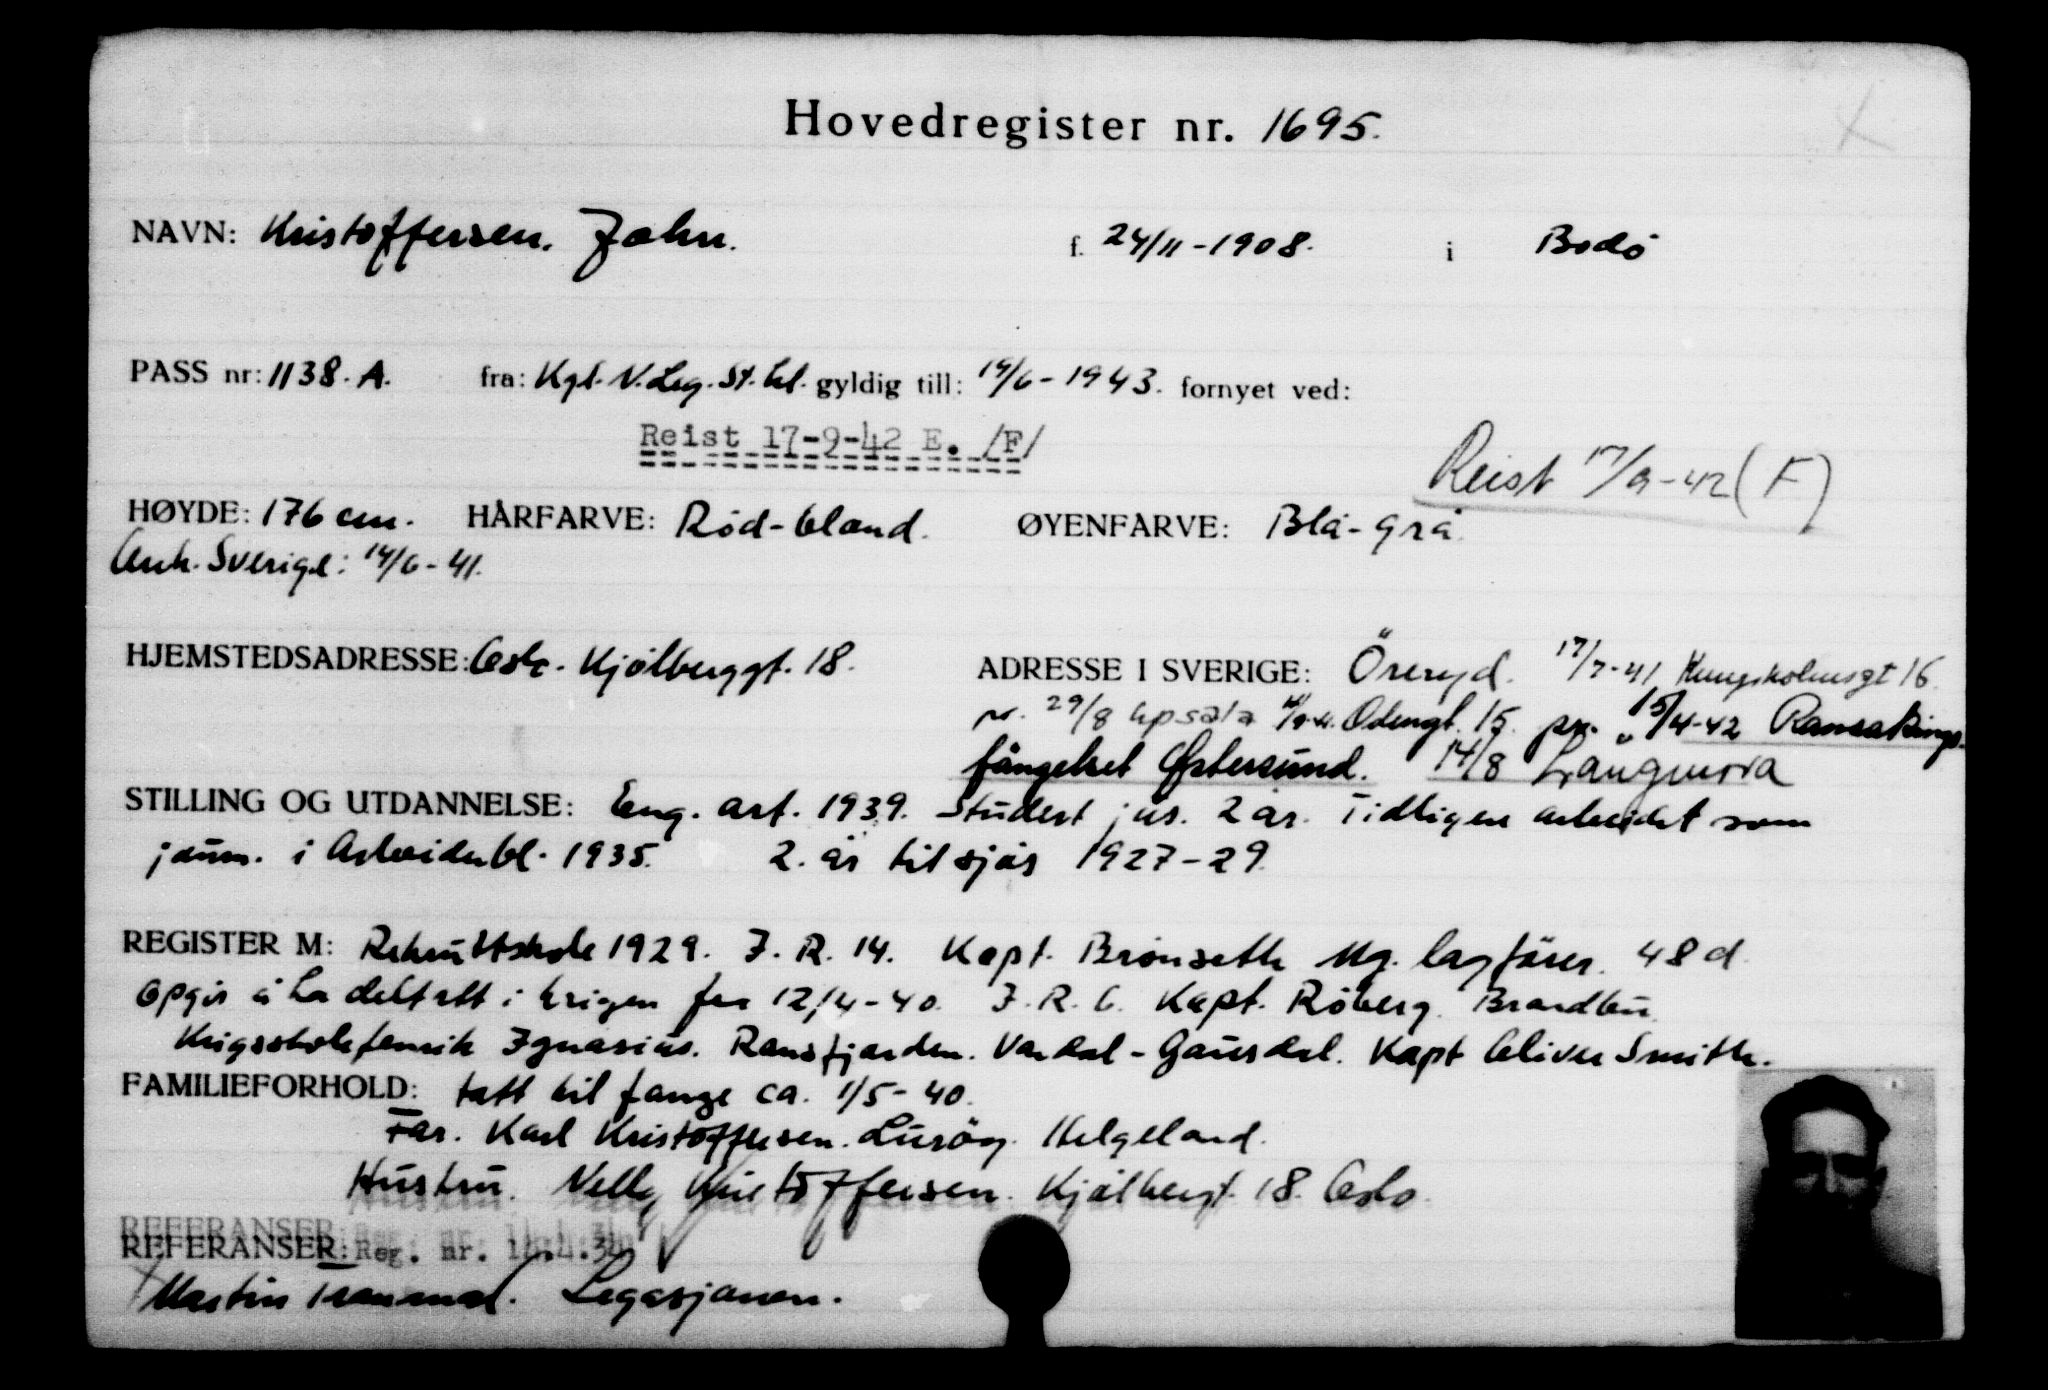 Hovedregister nr. 1695.
NAVN: Kristoffersen, John. f. 24/11-1908. i Bodö
PASS nr: 1138. A. fra: Kgl. N. Leg. St. hl. gyldig till: 14/6-1943. fornyet ved:
Reist 17-9-42 E. /F/
Reist 17/9-42 (F)
HØYDE: 176 cm. HÅRFARVE: Röd-blond. ØYENFARVE: Blå-grå
Ank. Sverige: 14/6-41.
HJEMSTEDSADRESSE: Oslo. Kjölberggt. 18. ADRESSE I SVERIGE: Öreryd. 17/7-41 Kungsholmsgt 16
pr. 29/8 Upsala Odengt. 15. pr. 15/4-42 Ransaknings-
fängelset Östersund. 14/8 Långmora
STILLING OG UTDANNELSE: Eng. art. 1939. Studert jus. 2 år. Tidligere arbeidet som
journ. i Arbeiderbl. 1935. 2. år til sjös 1927-29.
REGISTER M: Rekruttskole 1929. I. R. 14. Kapt. Brönseth Mg. lagförer. 48 d
Opgir å ha deltatt i krigen fra 12/4-40. I. R. 6. Kapt. Röberg. Brandbu
Krigsskolefenrik Ignasius. Randsfjorden. Vardal-Gausdal. Kapt Oliver Smith.
FAMILIEFORHOLD: tatt til fange ca. 1/5-40.
Far. Karl Kristoffersen. Luröy. Helgeland.
Hustru. Nelly Kristoffersen. Kjölbergt. 18. Oslo.
REFERANSER: Reg. nr.
Martin Tranmæl. Legasjonen.